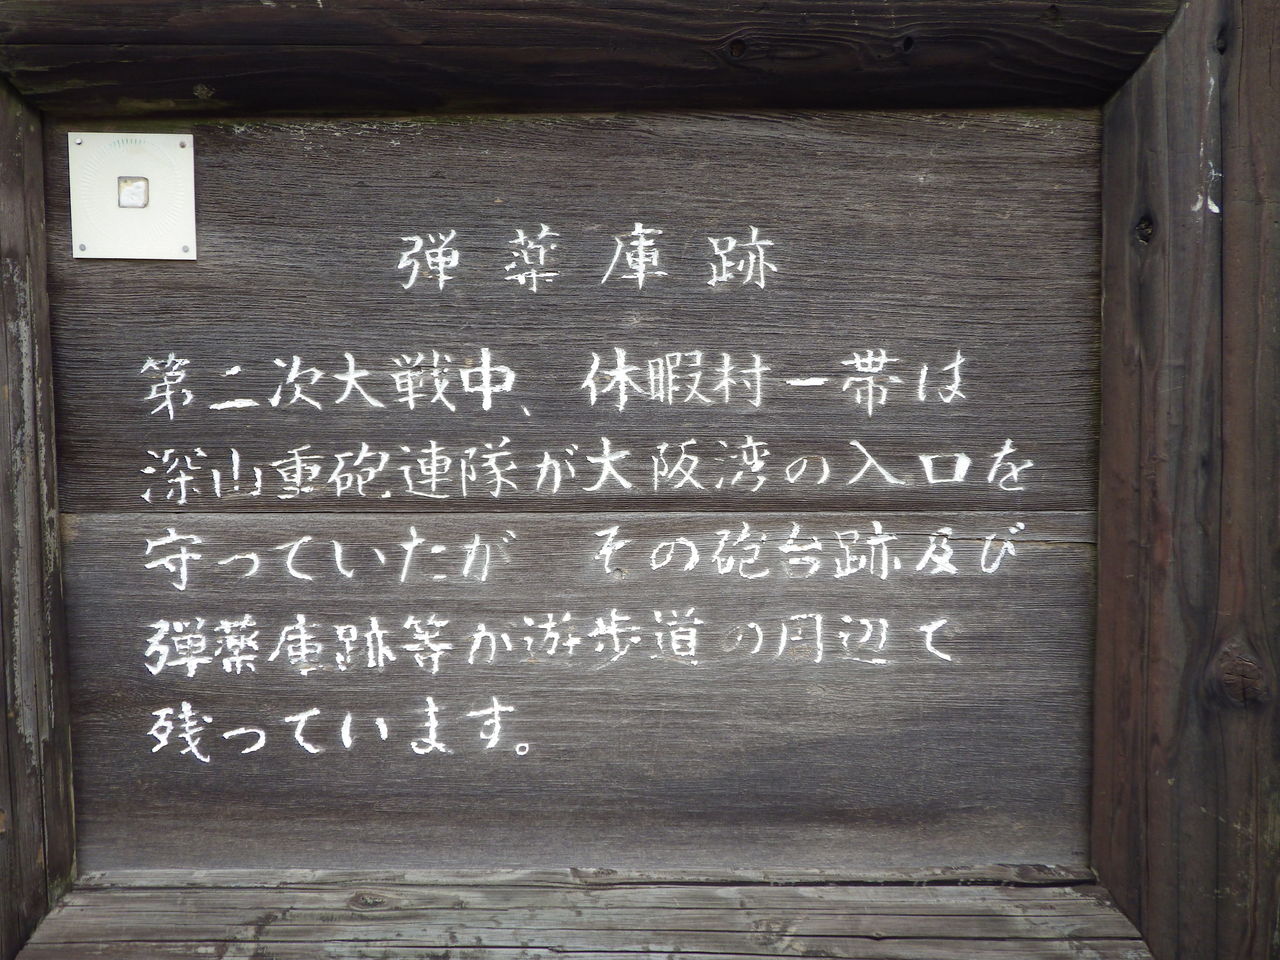 弾薬庫跡
第二次大戦中、休暇村一帯は
深山重砲連隊が大阪湾の入口を
守っていたが　その砲台跡及び
弾薬庫跡等が遊歩道の周辺で
残っています。